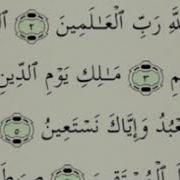 رَبِّ ٱلْعَـٰلَمِينَ ٢
٣ مَـٰلِكِ يَوْمِ ٱلدِّينِ
نَعْبُدُ وَإِيَّاكَ نَسْتَعِينُ ٥